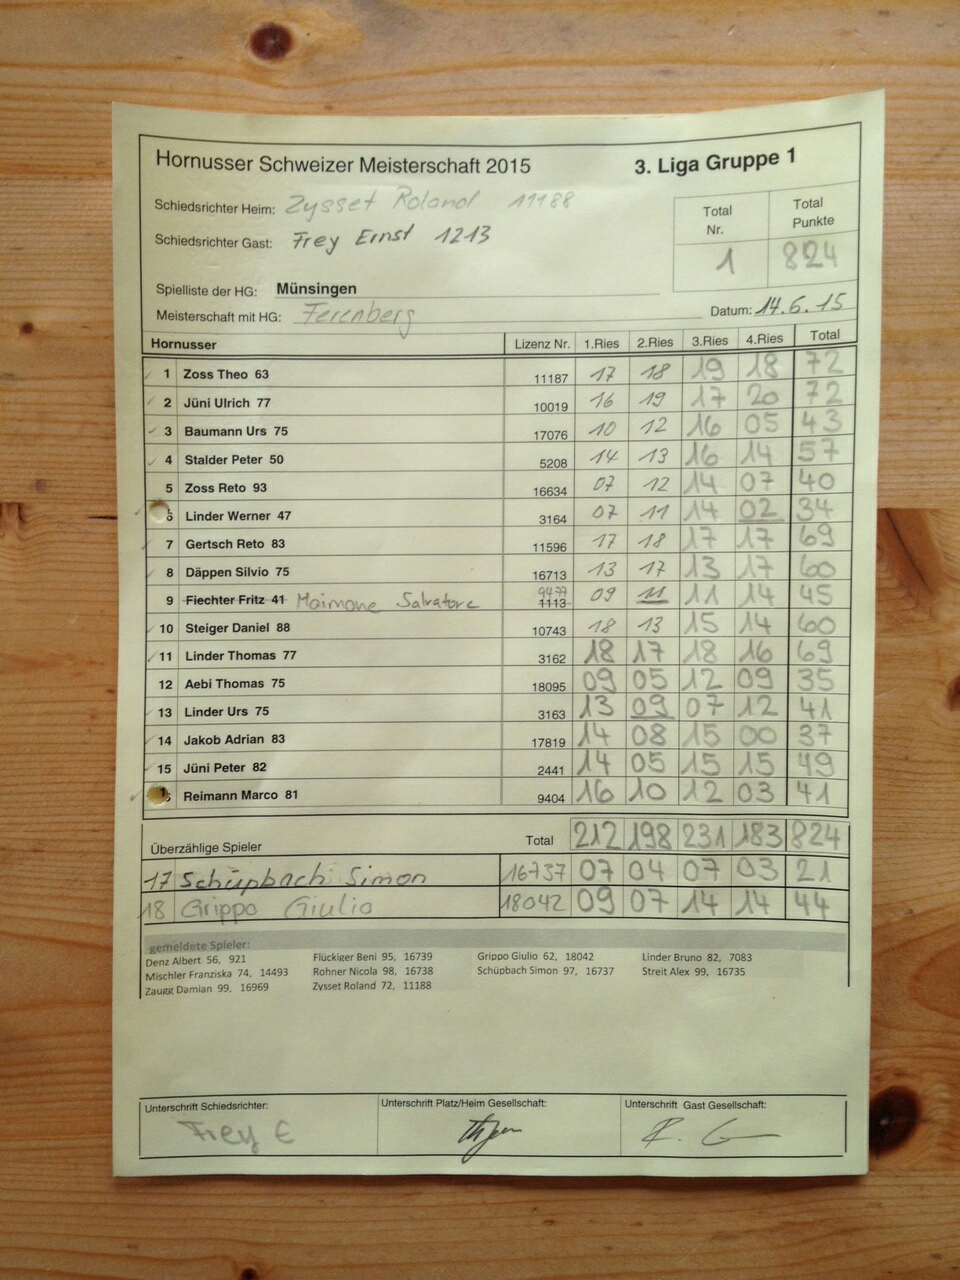 Hornusser Schweizer Meisterschaft 2015 3. Liga Gruppe 1
Schiedsrichter Heim: Zysset Roland 11188
Schiedsrichter Gast: Frey Ernst 1213
Total Nr. Total Punkte
1 824
Spielliste der HG: Münsingen
Meisterschaft mit HG: Ferenberg Datum: 14.6.15
Hornusser Lizenz Nr. 1.Ries 2.Ries 3.Ries 4.Ries Total
1 Zoss Theo 63 11187 17 18 19 18 72
2 Jüni Ulrich 77 10019 16 19 17 20 72
3 Baumann Urs 75 17076 10 12 16 05 43
4 Stalder Peter 50 5208 14 13 16 14 57
5 Zoss Reto 93 16634 07 12 14 07 40
6 Linder Werner 47 3164 07 11 14 02 34
7 Gertsch Reto 83 11596 17 18 17 17 69
8 Däppen Silvio 75 16713 13 17 13 17 60
9 Fiechter Fritz 41 Maimone Salvatore 1113 9477 09 11 11 14 45
10 Steiger Daniel 88 10743 18 13 15 14 60
11 Linder Thomas 77 3162 18 17 18 16 69
12 Aebi Thomas 75 18095 09 05 12 09 35
13 Linder Urs 75 3163 13 09 07 12 41
14 Jakob Adrian 83 17819 14 08 15 00 37
15 Jüni Peter 82 2441 14 05 15 15 49
16 Reimann Marco 81 9404 16 10 12 03 41
Überzählige Spieler Total 212 198 231 183 824
17 Schüpbach Simon 16737 07 04 07 03 21
18 Grippo Giulio 18042 09 07 14 14 44
gemeldete Spieler:
Denz Albert 56, 921 Flückiger Beni 95, 16739 Grippo Giulio 62, 18042 Linder Bruno 82, 7083
Mischler Franziska 74, 14493 Rohner Nicola 98, 16738 Schüpbach Simon 97, 16737 Streit Alex 99, 16735
Zaugg Damian 99, 16969 Zysset Roland 72, 11188
Unterschrift Schiedsrichter: Unterschrift Platz/Heim Gesellschaft: Unterschrift Gast Gesellschaft:
Frey E